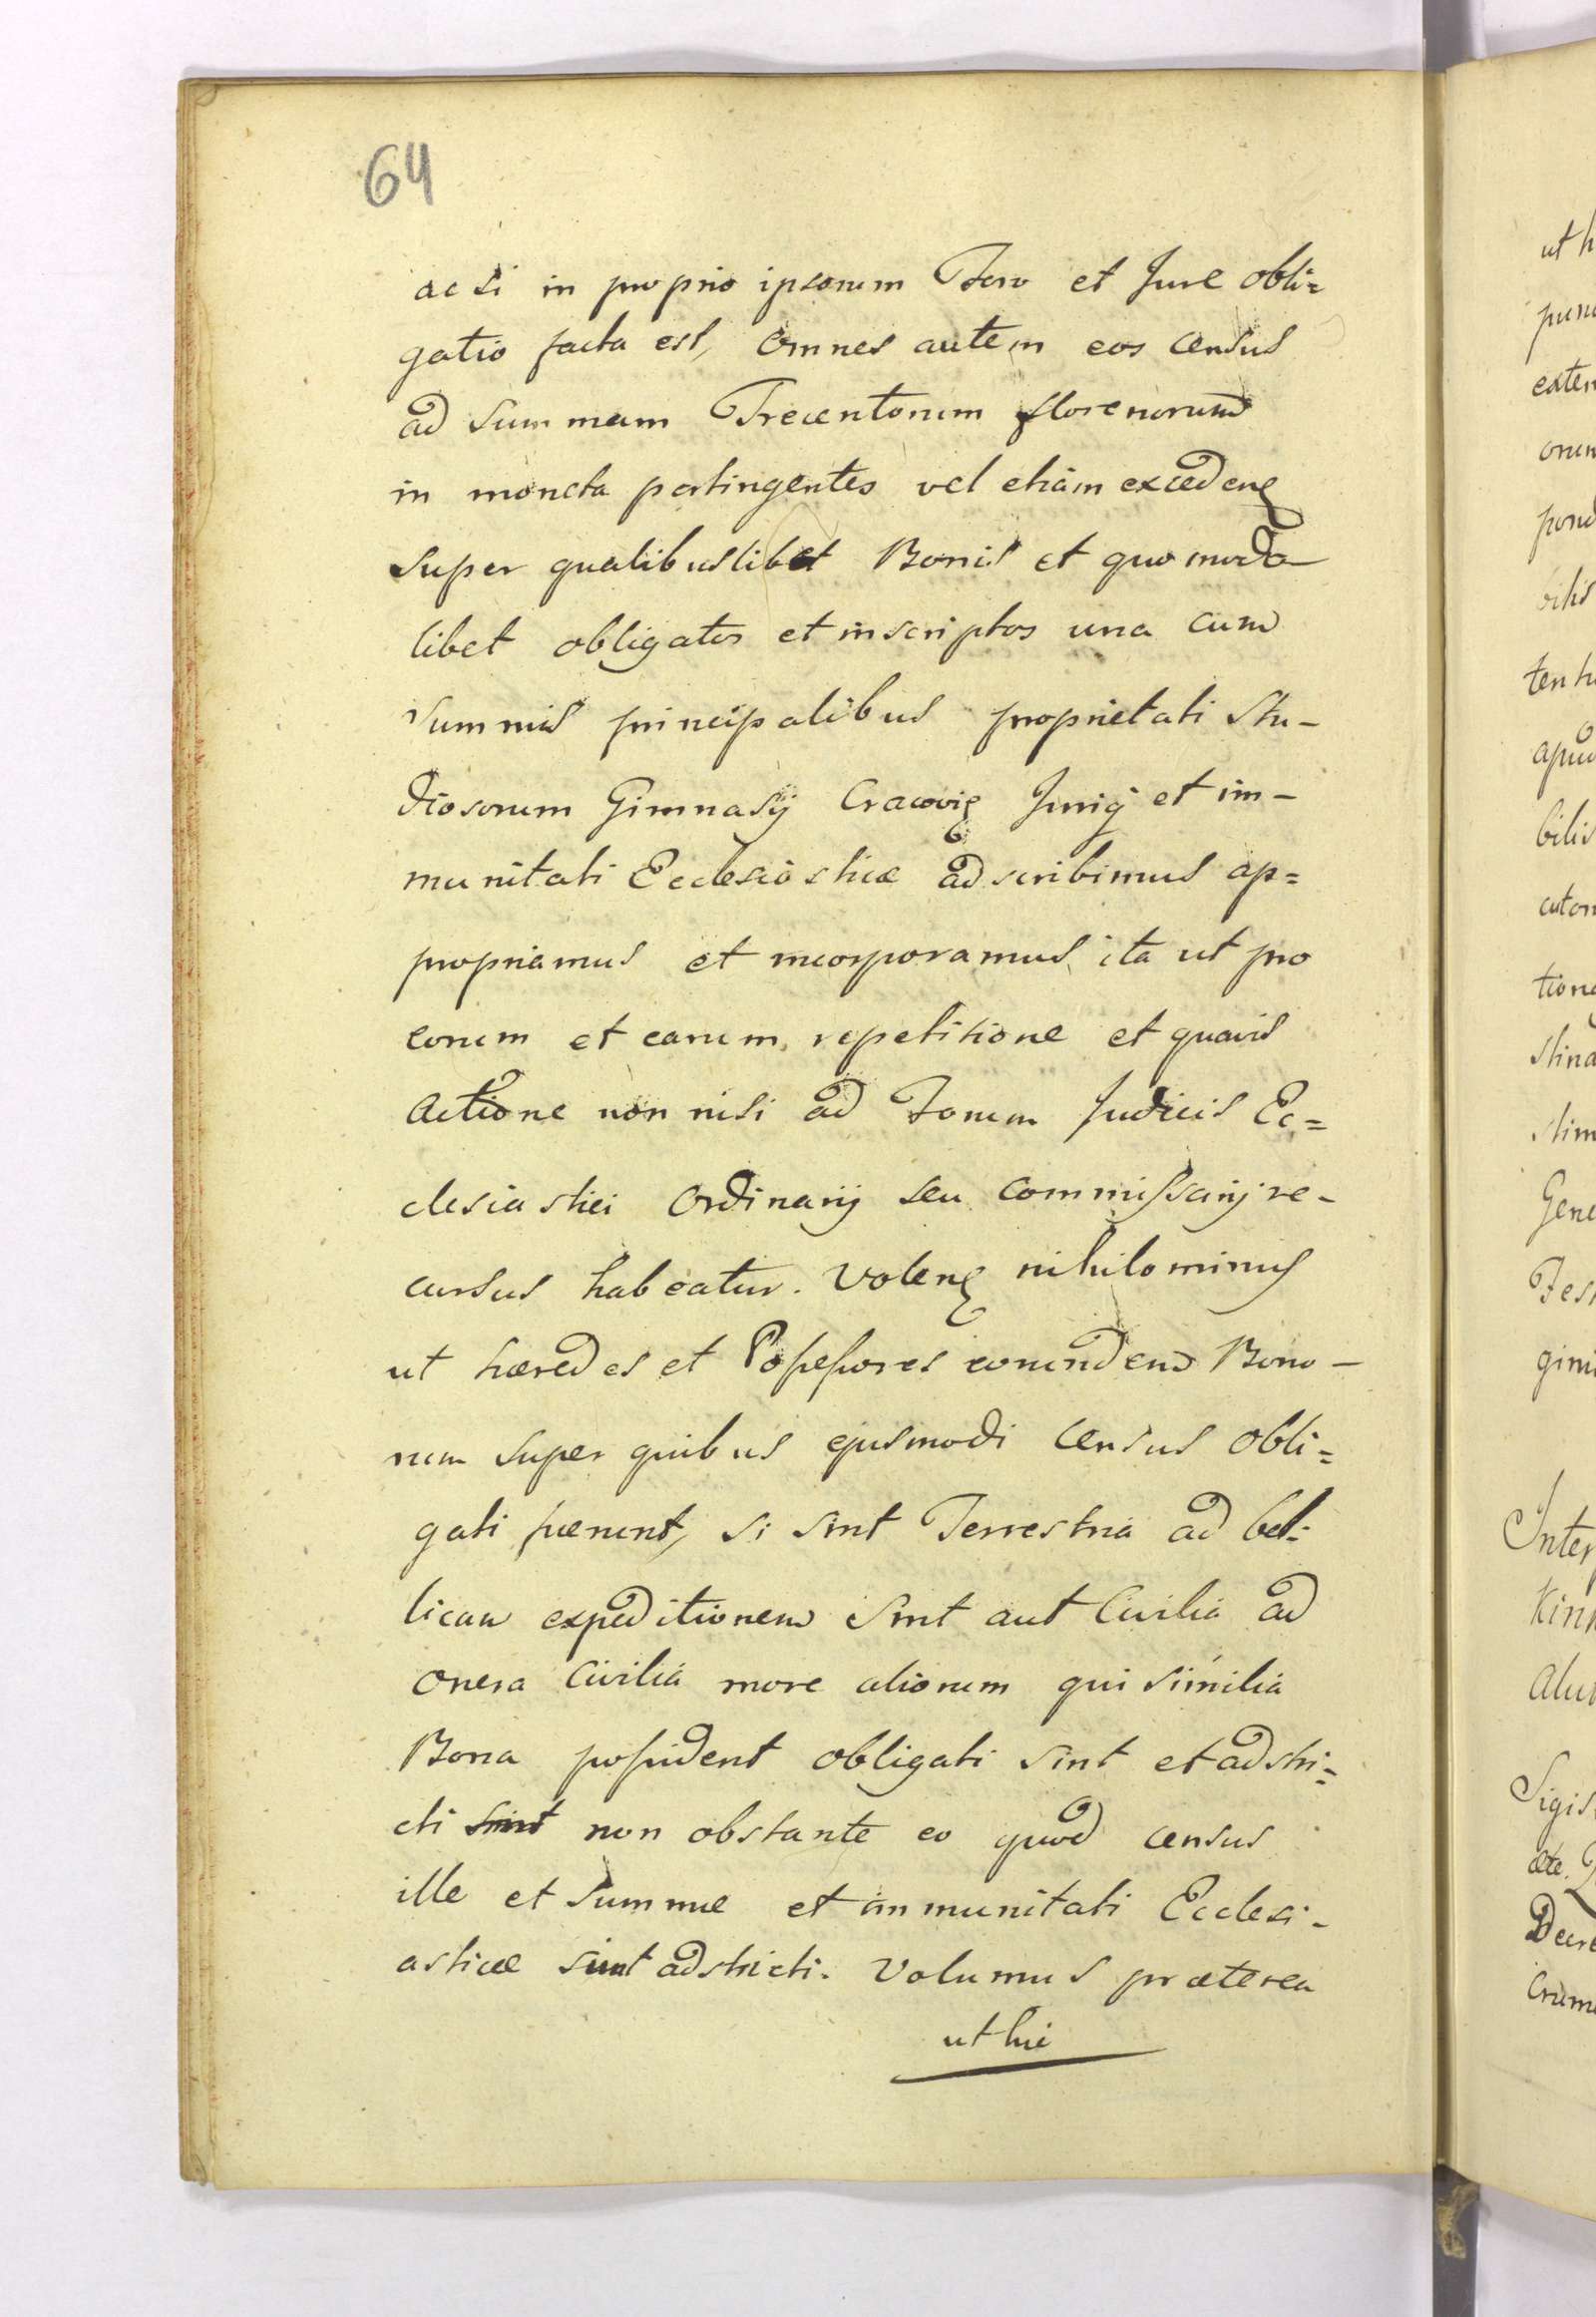 64
ac si in proprio ipsorum Foro et Jure obli=
gatio facta est, omnes autem eos census
ad Summam Trecentorum florenorum
in moneta pertingentes vel etiam exceden[tes]
super qualibuslibet Bonis et quomodo-
libet obligatos et inscriptos una cum
Summis principalibus proprietati Stu-
diosorum Gimnasij Cracovię Jurię et im-
munitati Ecclesiasticæ adscribimus ap=
propriamus et incorporamus, ita ut pro
eorum et earum repetitione et quavis
actione non nisi ad Forum Judicis Ec=
clesiastici Ordinarij seu Commissarij re-
cursus habeatur. Volen[tes] nihilominus
ut hæredes et Possessores eorundem Bono-
rum super quibus ejusmodi census obli=
gati fuerint, si sint Terrestria ad bel=
licam expeditionem sint aut Civilia ad
onera Civilia more aliorum qui similia
Bona possident obligati sint et adstri=
cti sint non obstante eo quod census
ille et Summæ et immunitati Ecclesi-
asticæ sint adstricti. Volumus præterea
ut hi
ut h
Gene
Inter
Sigis